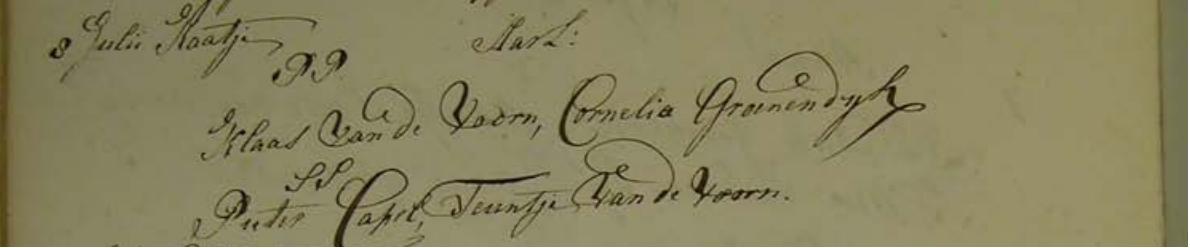 8 Julii Kaatje Harl:
PP
Klaas Van de Voorn, Cornelia Groenendyk
SS
Pieter Capel, Teuntje Van de Voorn.